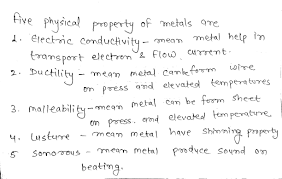 five physical property of metals are
1. Electric conductivity - mean metal help in
transport electron & flow current.
2. Ductility - mean metal can be form wire
on press and elevated temperatures
3. malleability - mean metal can be form sheet
on press. and elevated temperature
4. Lusture - mean metal have shinning property
5 Sonorous - mean metal produce sound on
beating.